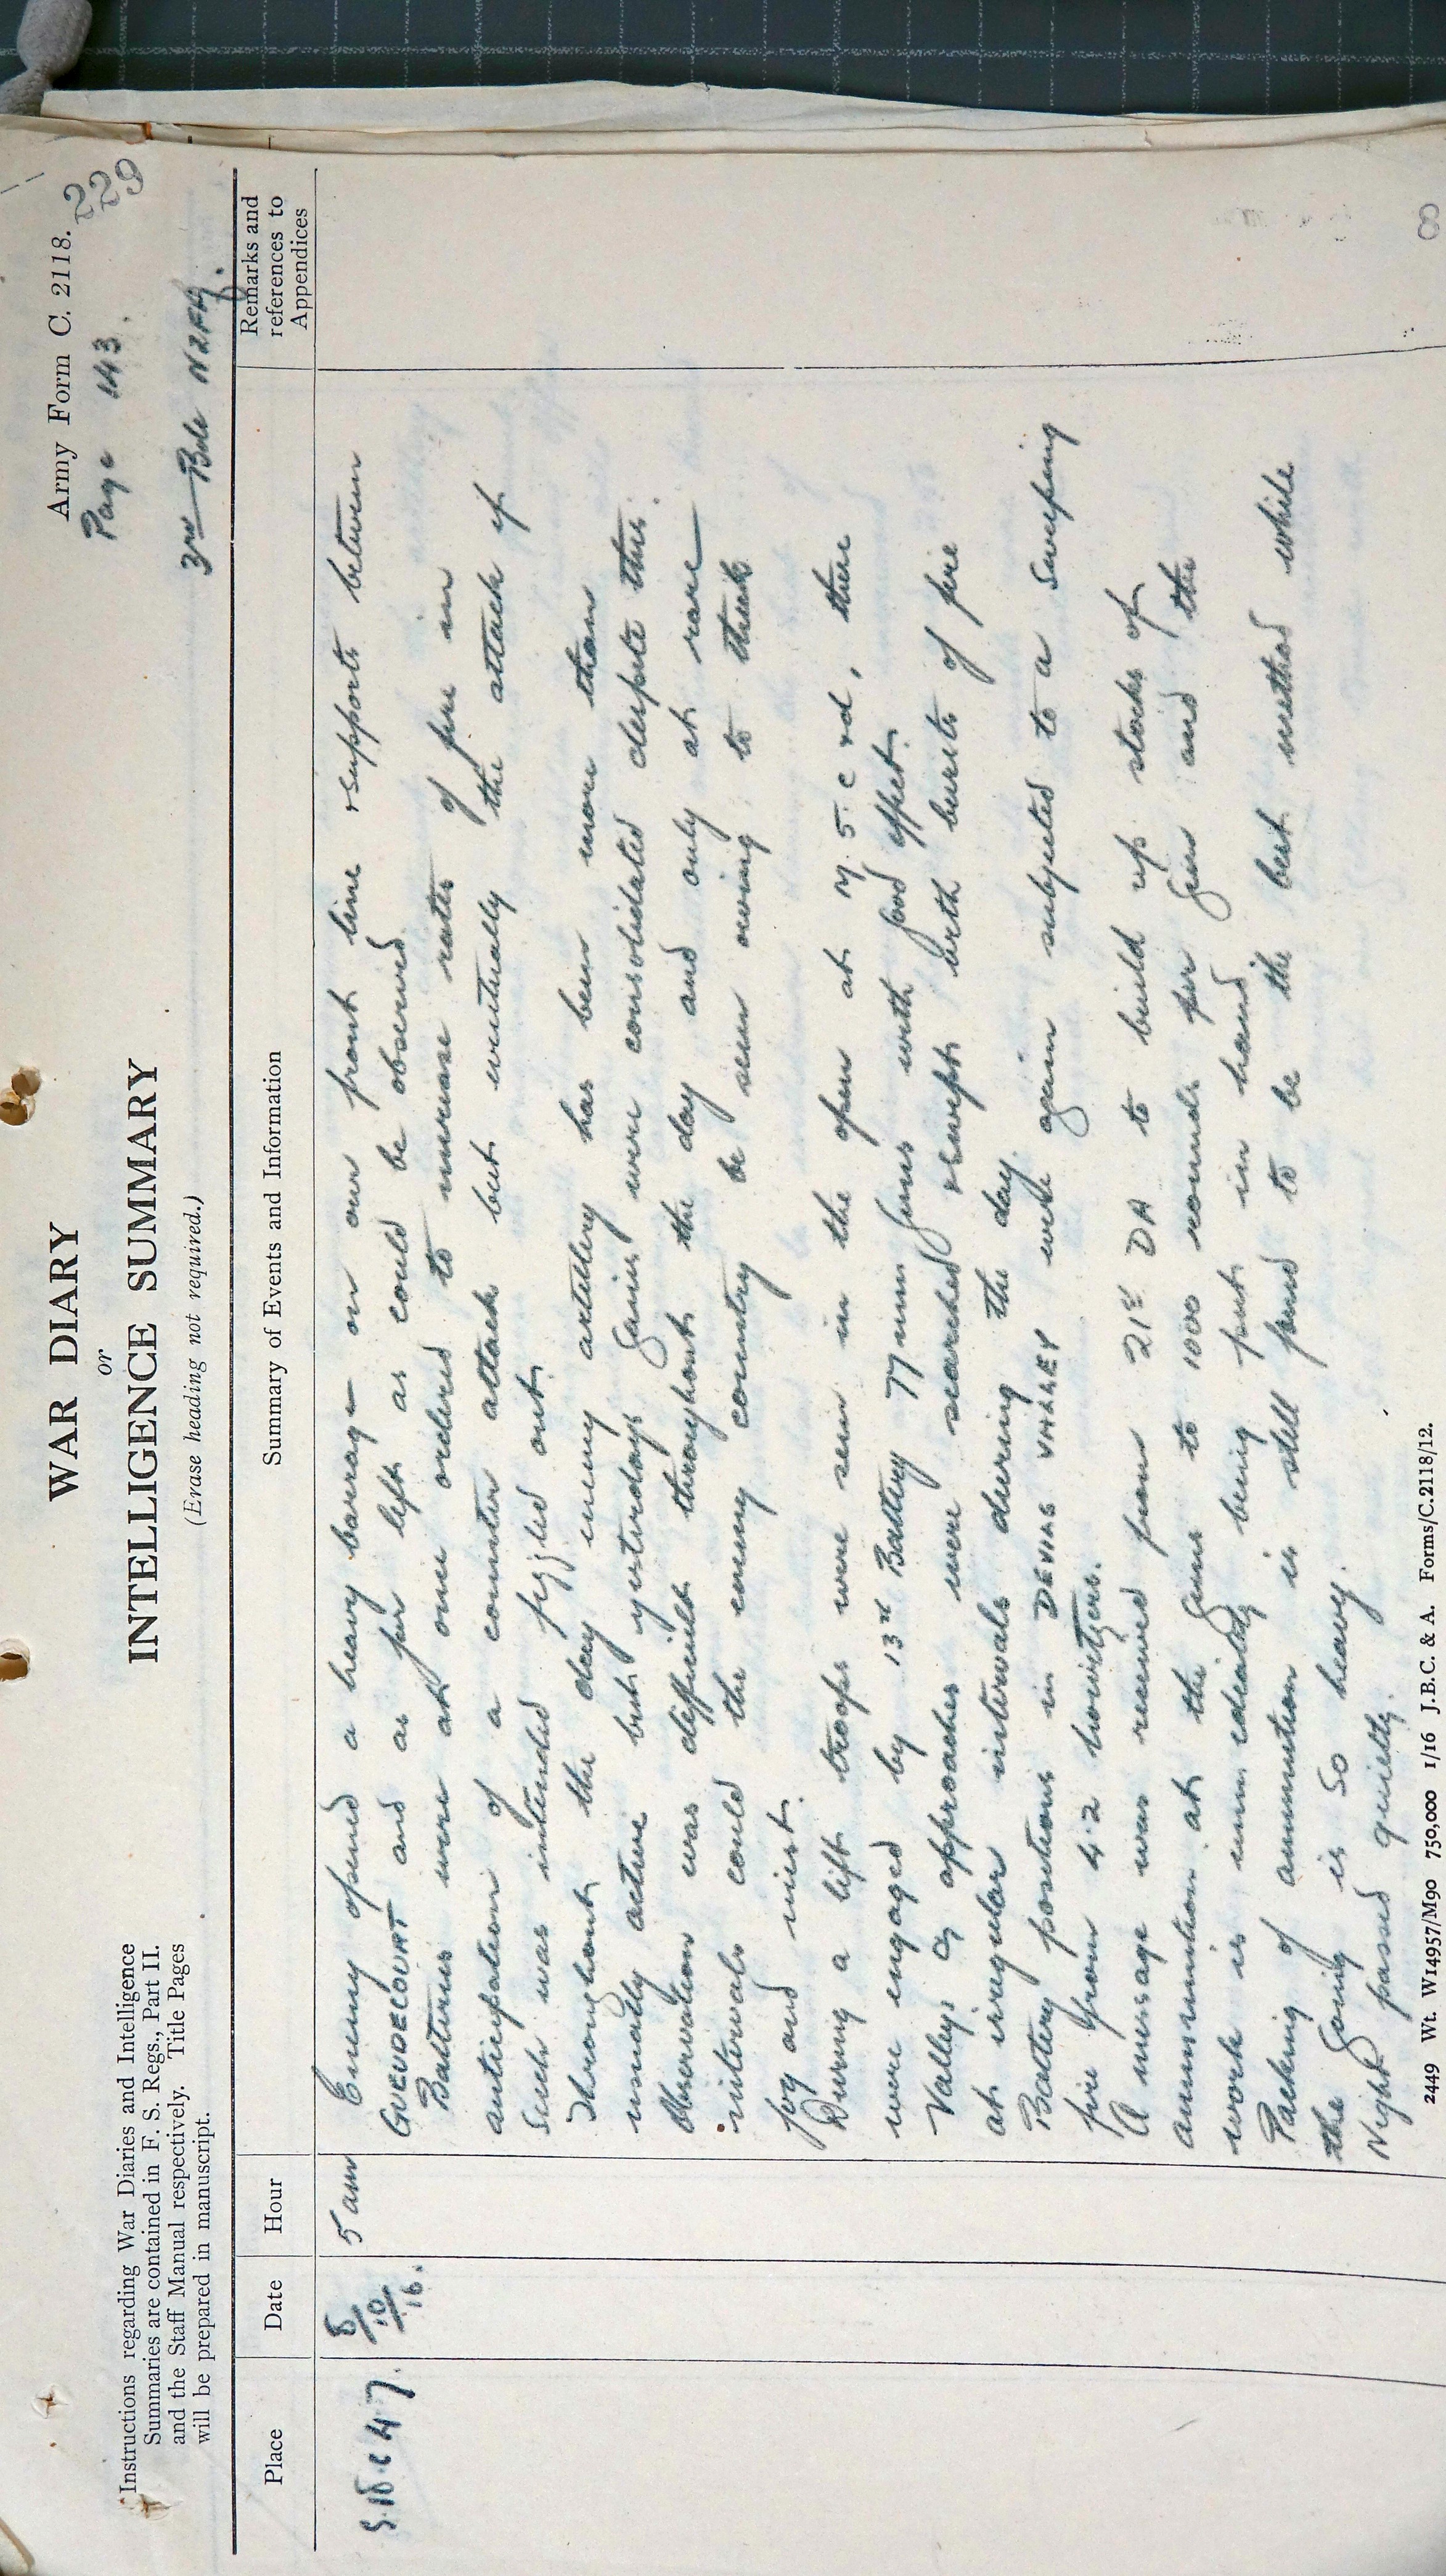 Army Form C. 2118.
WAR DIARY
Page 143.
229
or
INTELLIGENCE SUMMARY
3rd Bde NZFA.
(Erase heading not required.)
Instructions regarding War Diaries and Intelligence
Summaries are contained in F. S. Regs., Part II.
and the Staff Manual respectively. Title Pages
will be prepared in manuscript.
Place
Date
Hour
Summary of Events and Information
Remarks and
references to
Appendices
S.18.c 4.7.
8/10/16.
5 am
Enemy opened a heavy barrage on our front line & supports between
GUEUDECOURT and as far left as could be observed
Batteries were at once ordered to increase rates of fire in
anticipation of a counter attack but eventually the attack if
such was intended fizzled out.
Throughout the day enemy artillery has been more than
usually active but yesterdays gains were consolidated despite this.
Observation was difficult throughout the day and only at rare
intervals could the enemy country be seen owing to thick
fog and mist.
During a lift troops were seen in the open at M 5. c & d, there
were engaged by 13th Battery 77 mm guns with good effect.
Valleys & approaches were searched & swept with bursts of fire
at irregular intervals during the day.
Battery positions in DEVILS VALLEY were again subjected to a sweeping
fire from 4.2 howitzers.
A message was received from 21st DA to build up stocks of
ammunition at the guns to 1000 rounds per gun and the
work is immediately being put in hand
Packing of ammunition is still found to be the best method while
the going is so heavy.
Night passed quietly.
2449 Wt. W14957/M90 750,000 1/16 J.B.C. & A. Forms/C.2118/12.
8